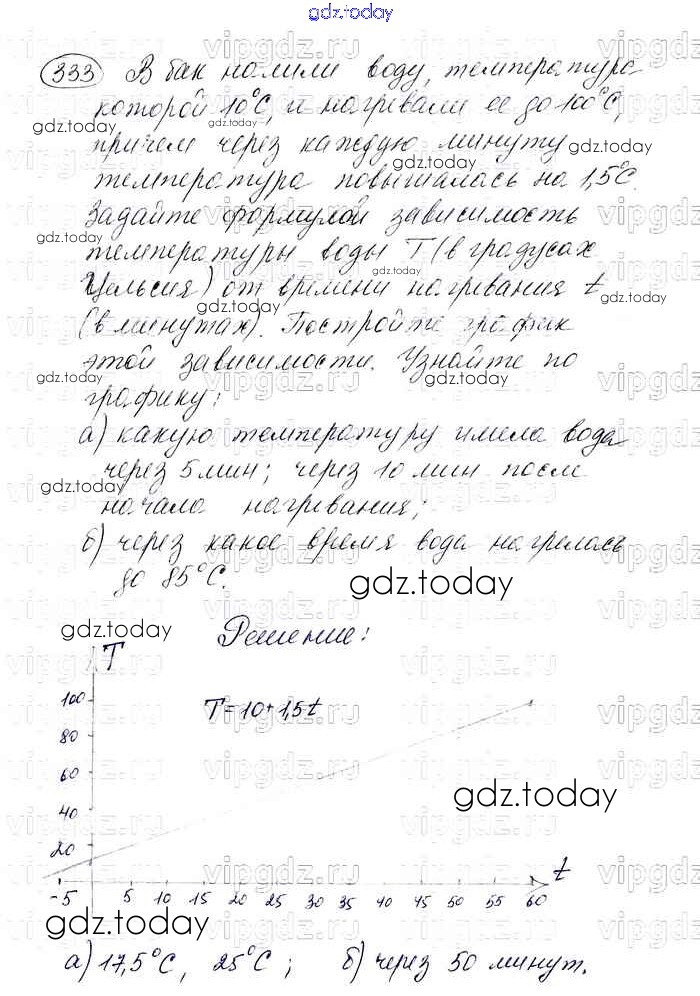 gdz.today
333 В бак налили воду, температура
которой 10°С, и нагревали ее до 100°С,
gdz.today
причем через каждую минуту
gdz.today
температура повышалась на 1,5°С.
gdz.today
Задайте формулой зависимость
gdz.today
температуры воды T (в градусах
gdz.today
Цельсия) от времени нагревания t
gdz.today
(в минутах). Постройте график
этой зависимости. Узнайте по
gdz.today gdz.today
графику:
а) какую температуру имела вода
через 5 мин; через 10 мин после
gdz.today gdz.today
начала нагревания;
б) через какое время вода нагрелась
до 85°С.
gdz.today
gdz.today Решение:
T
100 T=10+1,5t
80
60
40 gdz.today
20
t
-5 5 10 15 20 25 30 35 40 45 50 55 60
gdz.today gdz.today
а) 17,5°С, 25°С; б) через 50 минут.
vipgdz.ru